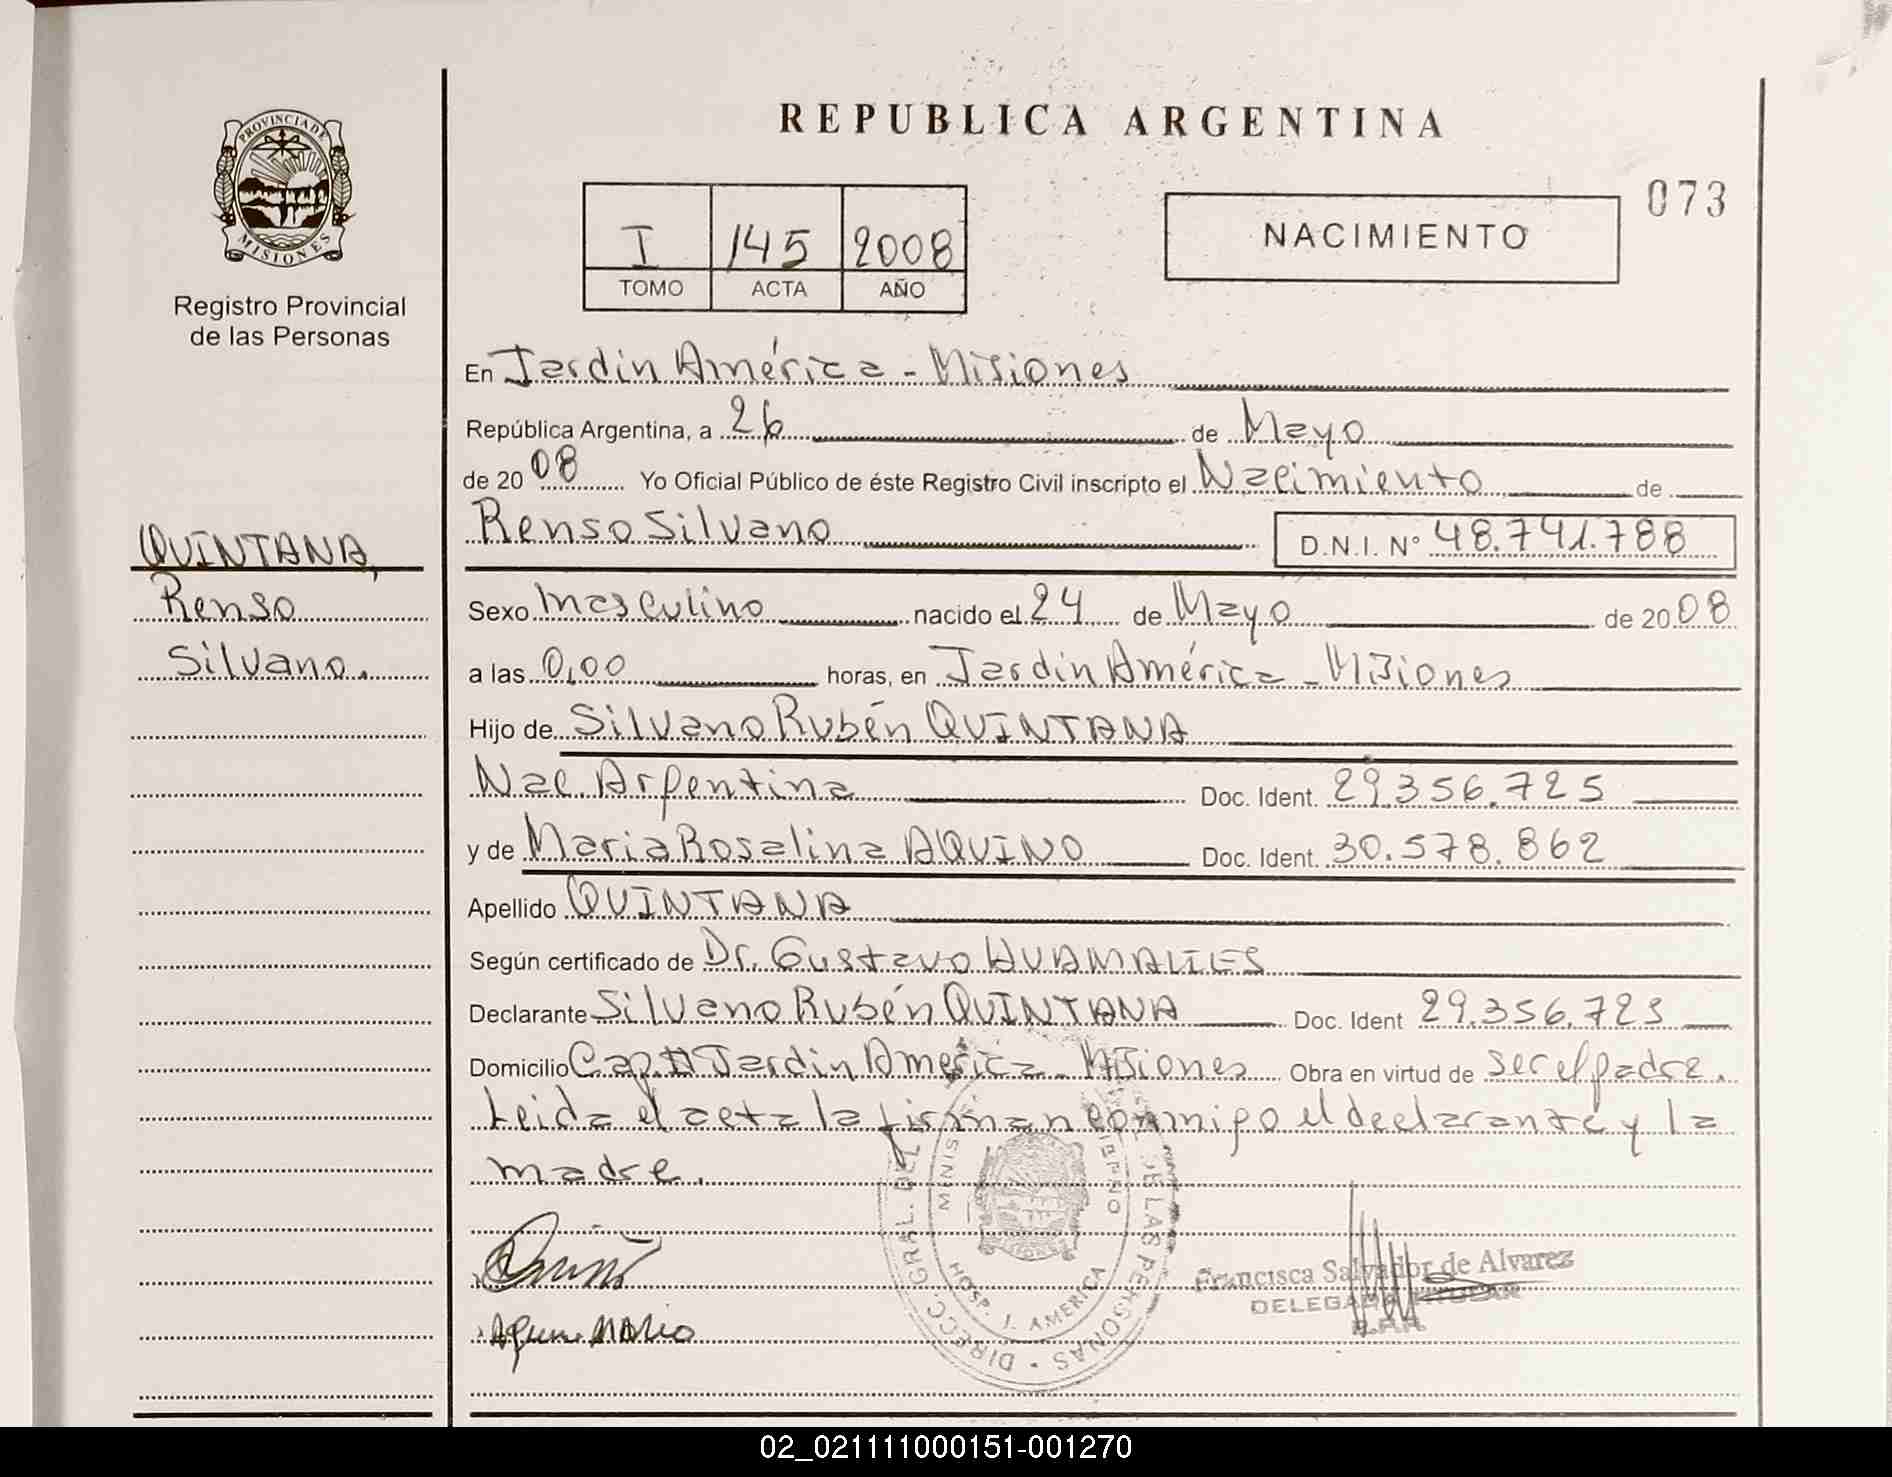 PROVINCIA DE
MISIONES
Registro Provincial
de las Personas
REPUBLICA ARGENTINA
073
I 145 2008
TOMO ACTA AÑO
NACIMIENTO
En Jardín América - Misiones
República Argentina, a 26 de Mayo
de 2008 Yo Oficial Público de éste Registro Civil inscripto el Nacimiento de
Renso Silvano D.N.I. N° 48.741.788
QUINTANA,
Renso
Silvano.
Sexo Masculino nacido el 24 de Mayo de 2008
a las 0,00 horas, en Jardín América - Misiones
Hijo de Silvano Rubén QUINTANA
Nac. Argentina Doc. Ident. 29.356.725
y de Maria Rosalina AQUINO Doc. Ident. 30.578.862
Apellido QUINTANA
Según certificado de Dr. Gustavo HUAMALIES
Declarante Silvano Rubén QUINTANA Doc. Ident 29.356.723
Domicilio Jardín América - Misiones Obra en virtud de ser el padre.
Leida el acta la firman conmigo el declarante y la
madre.
DIRECC. GRAL. DEL DE LAS PERSONAS
MINIS
HOSP. J. AMERICA
MISIONES
Francisca Salvador de Alvarez
DELEGADA TITULAR
R.P.P.
02_021111000151-001270